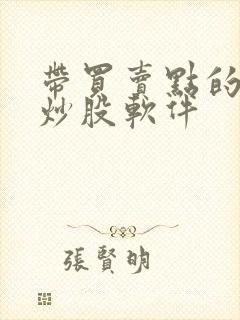 帶買賣點的
炒股軟件
張賢明